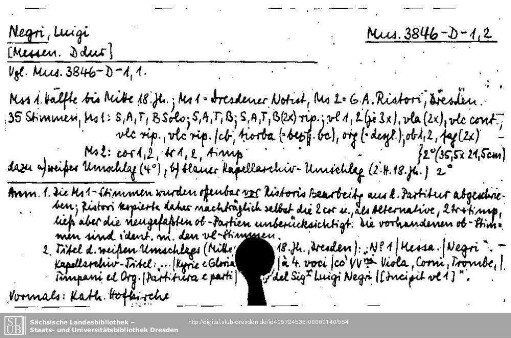 Negri, Luigi
Mus. 3846-D-1,2
[Messen. D dur]
Vgl. Mus. 3846-D-1,1.
Mss 1. Hälfte bis Mitte 18. Jh.; Ms 1 = Dresdener Notist, Ms 2 = G.A. Ristori, Dresden.
35 Stimmen, Ms 1: S,A,T,B Solo; S,A,T,B; S,A,T,B (2x) rip.; vl 1,2 (je 3x), vla (2x), vlc conc,
vlc rip., vlc rip./cb, tiorba (= beziff. bc), org (= desgl.), ob 1,2, fag (2x)
Ms 2: cor 1,2, tr 1,2, timp } 2° (35,5 x 21,5 cm)
dazu a) weißer Umschlag (4°), b) blauer Kapellarchiv-Umschlag (2.H.18.Jh.) 2°
Anm. 1. Die Ms 1-Stimmen wurden offenbar vor Ristoris Bearbeitg aus d. Partitur abgeschrie-
ben; Ristori kopierte daher nachträglich selbst die 2 cor u., als Alternative, 2 tr + timp,
ließ aber die neugefaßten ob-Partien unberücksichtigt. Die vorhandenen ob-Stim-
men sind ident. m. den vl-Stimmen.
2. Titel d. weißen Umschlages (Mitte 18. Jh., Dresden): "Nº 1 | Messa. | Negri".
Kapellarchiv-Titel: "... | Kyrie e Gloria | à 4. voci | co' VVni Viola, Corni, Trombe, |
Timpani el Org. | Partitura e parti del Sigr Luigi Negri | [Incipit vl 1]".
Vormals: Kath. Hofkirche
SLUB
Sächsische Landesbibliothek –
Staats- und Universitätsbibliothek Dresden